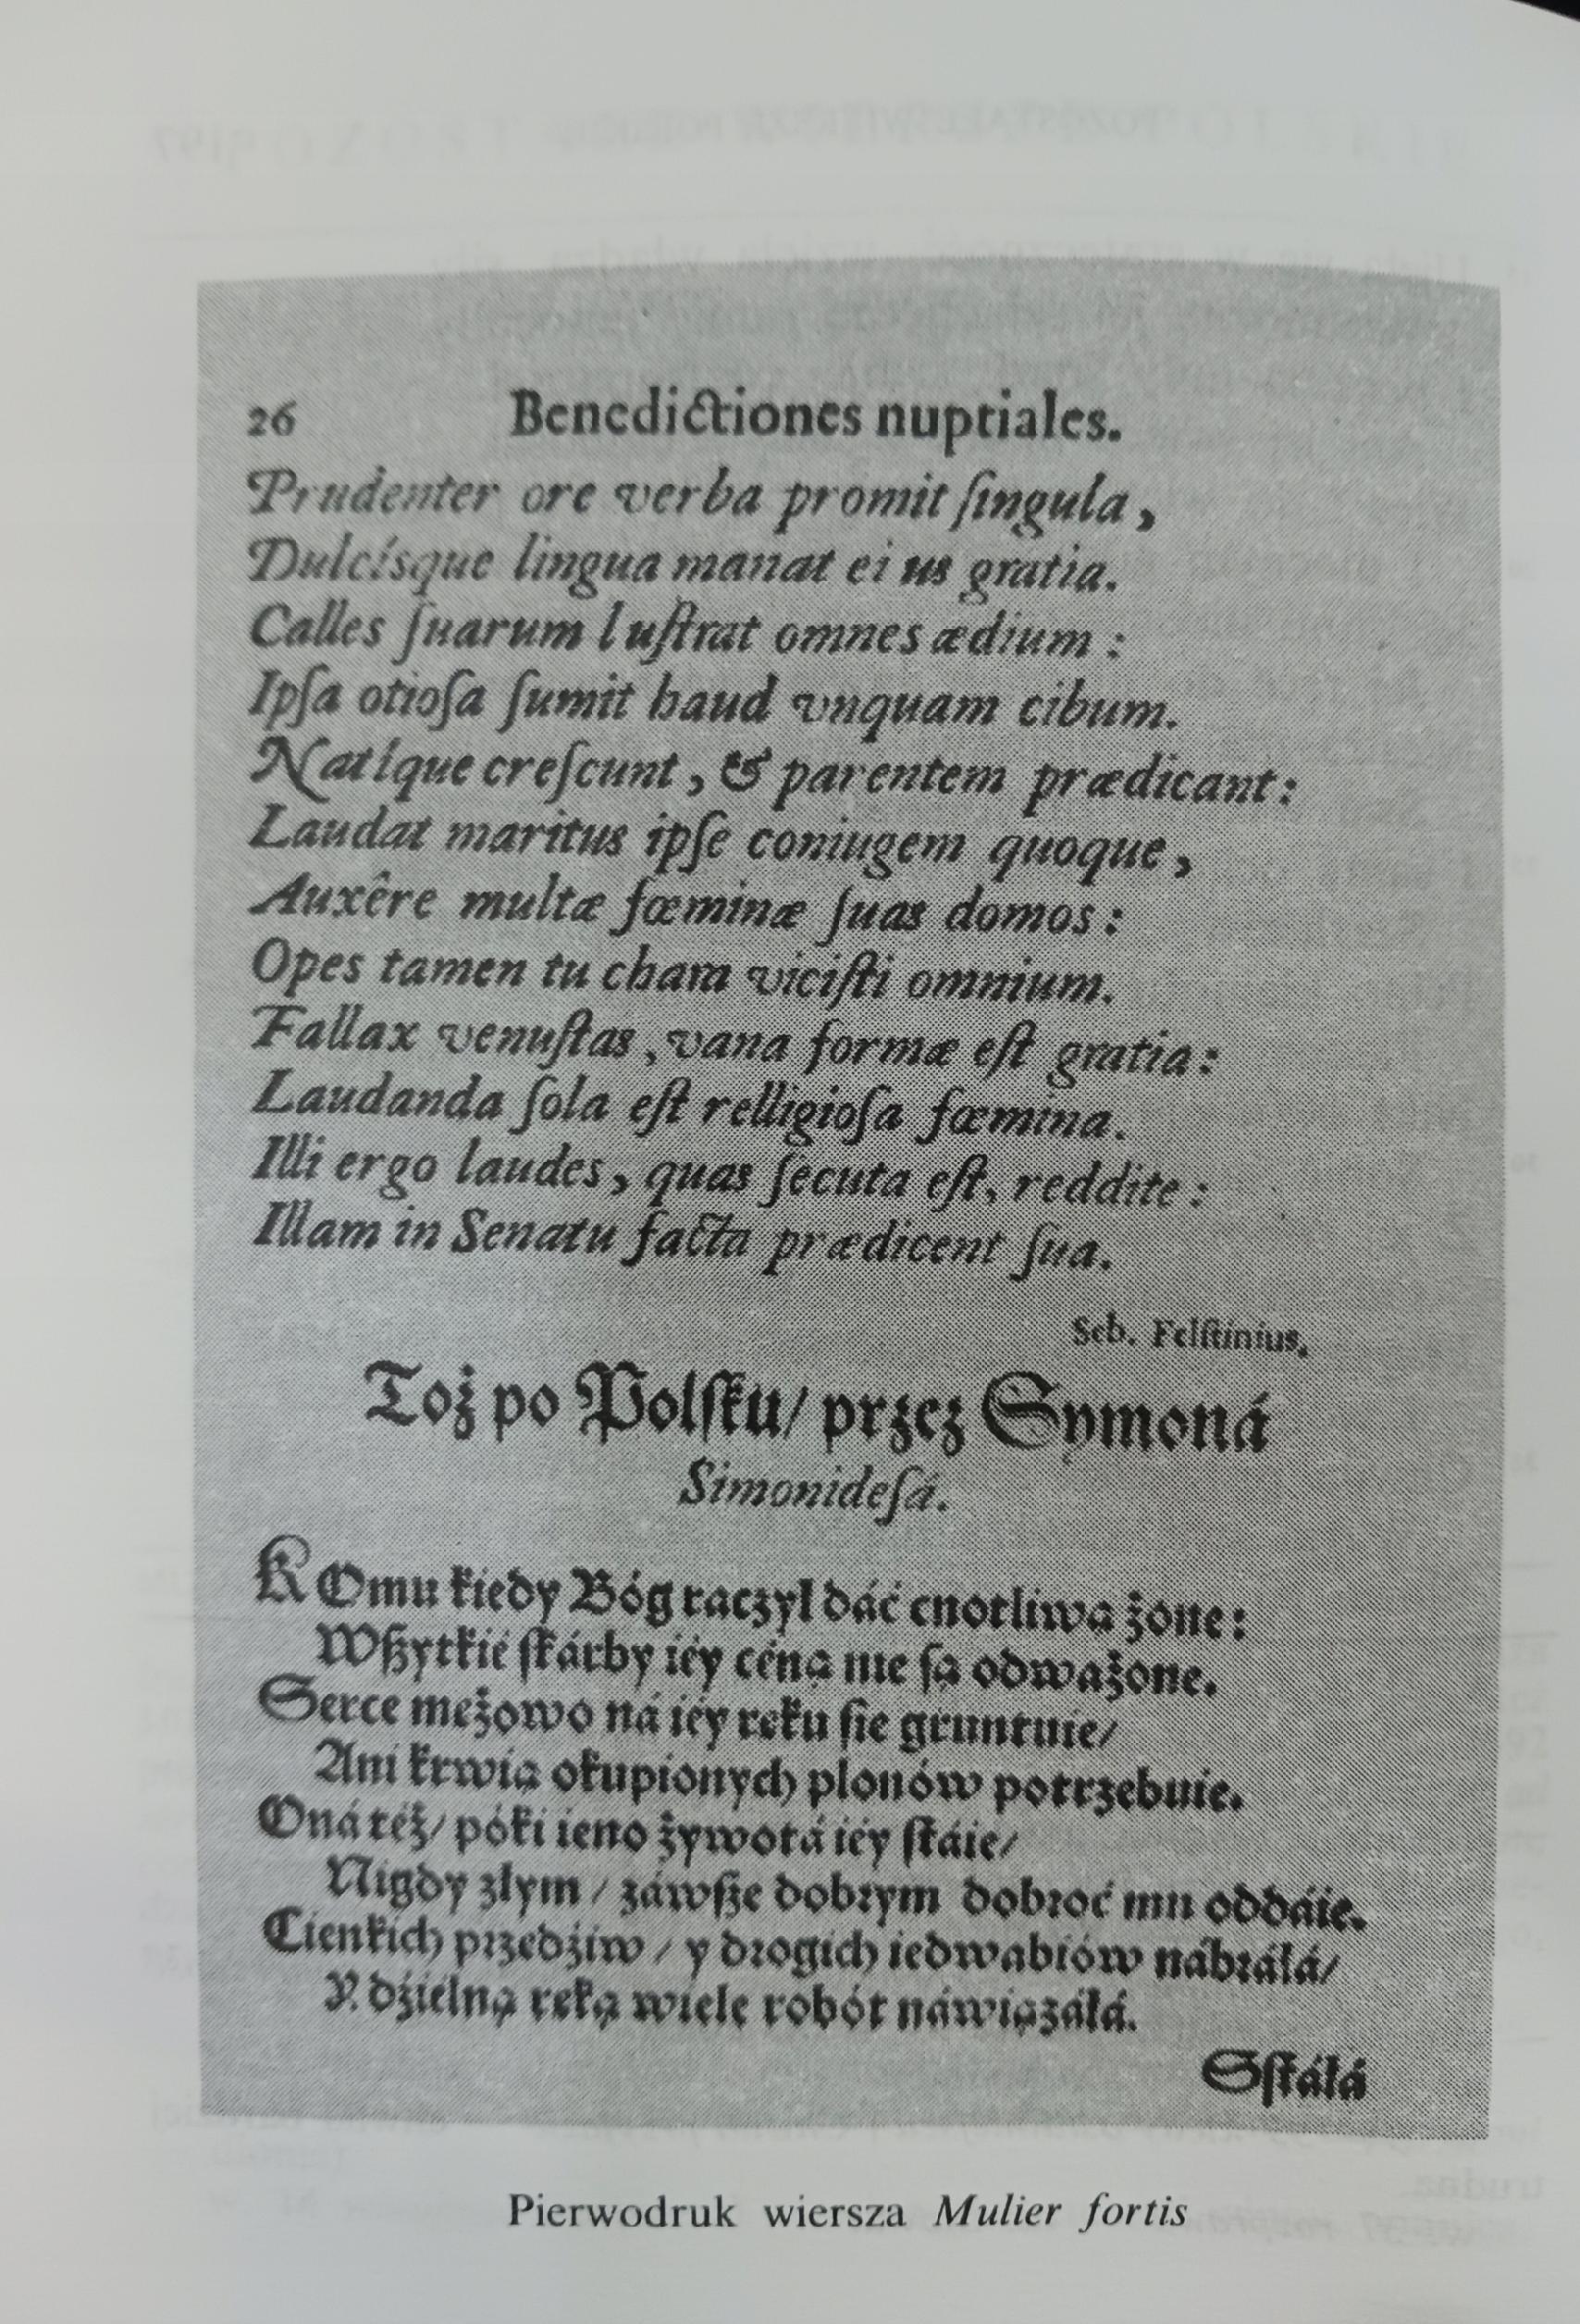 26 Benedictiones nuptiales.
Prudenter ore verba promit ſingula,
Dulcísque lingua manat ei us gratia.
Calles ſuarum l uſtrat omnes ædium :
Ipſa otioſa ſumit haud vnquam cibum.
Natíque creſcunt, & parentem prædicant:
Laudat maritus ipſe coniugem quoque,
Auxêre multæ fœminæ ſuas domos:
Opes tamen tu chara viciſti omnium.
Fallax venuſtas, vana formæ eſt gratia:
Laudanda ſola eſt relligioſa fœmina.
Illi ergo laudes, quas ſecuta eſt, reddite:
Illam in Senatu facta prædicent ſua.
Seb. Felſtinius.
Toż po Polſku/ przez Symoná
Simonideſá.
KOmu kiedy Bóg raczył dáć cnotliwą żonę:
Wßytkié ſkárby iéy céną nie ſą odważone.
Serce mężowo ná iéy ręku ſie gruntuie/
Ani krwią okupionych plonów potrzebuie.
Oná téż/ póki ieno żywotá iéy ſtáie/
Nigdy złym / záwſże dobrym dobroć mu oddáie.
Cienkich przędźiw / y drogich iedwabiów nábráłá/
Y dźielną ręką wiele robót náwiązáłá.
Sſtáłá
Pierwodruk wiersza Mulier fortis